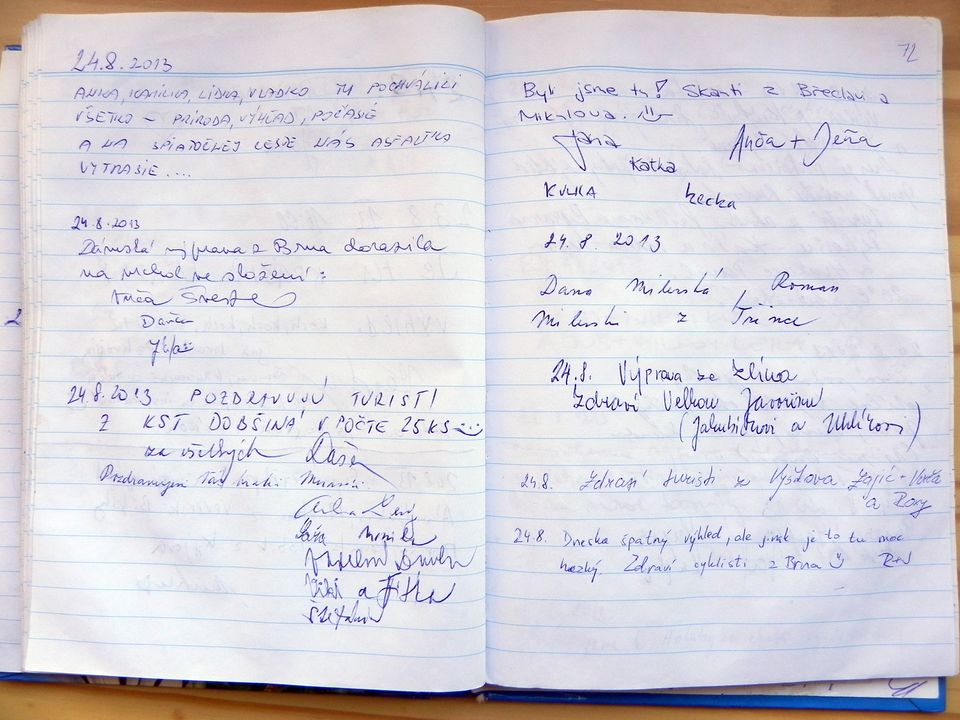 24.8.2013
ANKA, KAMILKA, LIDKA, VLADKO TU POCHVÁLILI
VŠETKO – PRÍRODA, VÝHĽAD, POČASIE
A NA SPIATOČNEJ CESTE NÁS ASFALTKA
VYTRASIE....
24.8.2013
Dámská výprava z Brna dorazila
na vrchol ve složení:
Danča
24.8.2013 POZDRAVUJÚ TURISTI
Z KST DOBŠINÁ V POČTE 25KS
za všetkých
Pozdravujem
a Jitka
72
Byli jsme tu! Skauti z Břeclavi a
Mikulova.
Jana Anča + Jeňa
Katka
KULKA
24.8. 2013
Dana Milerská, Roman
Milerski z Třince
24.8. Výprava ze Zlína
Zdraví Velkou Javořinu
(Jakubíčkovi a Uhlířovi)
24.8. Zdraví turisti z Vyškova
a Rony
24.8. Dneska špatný výhled, ale jinak je to tu moc
hezký. Zdraví cyklisti z Brna